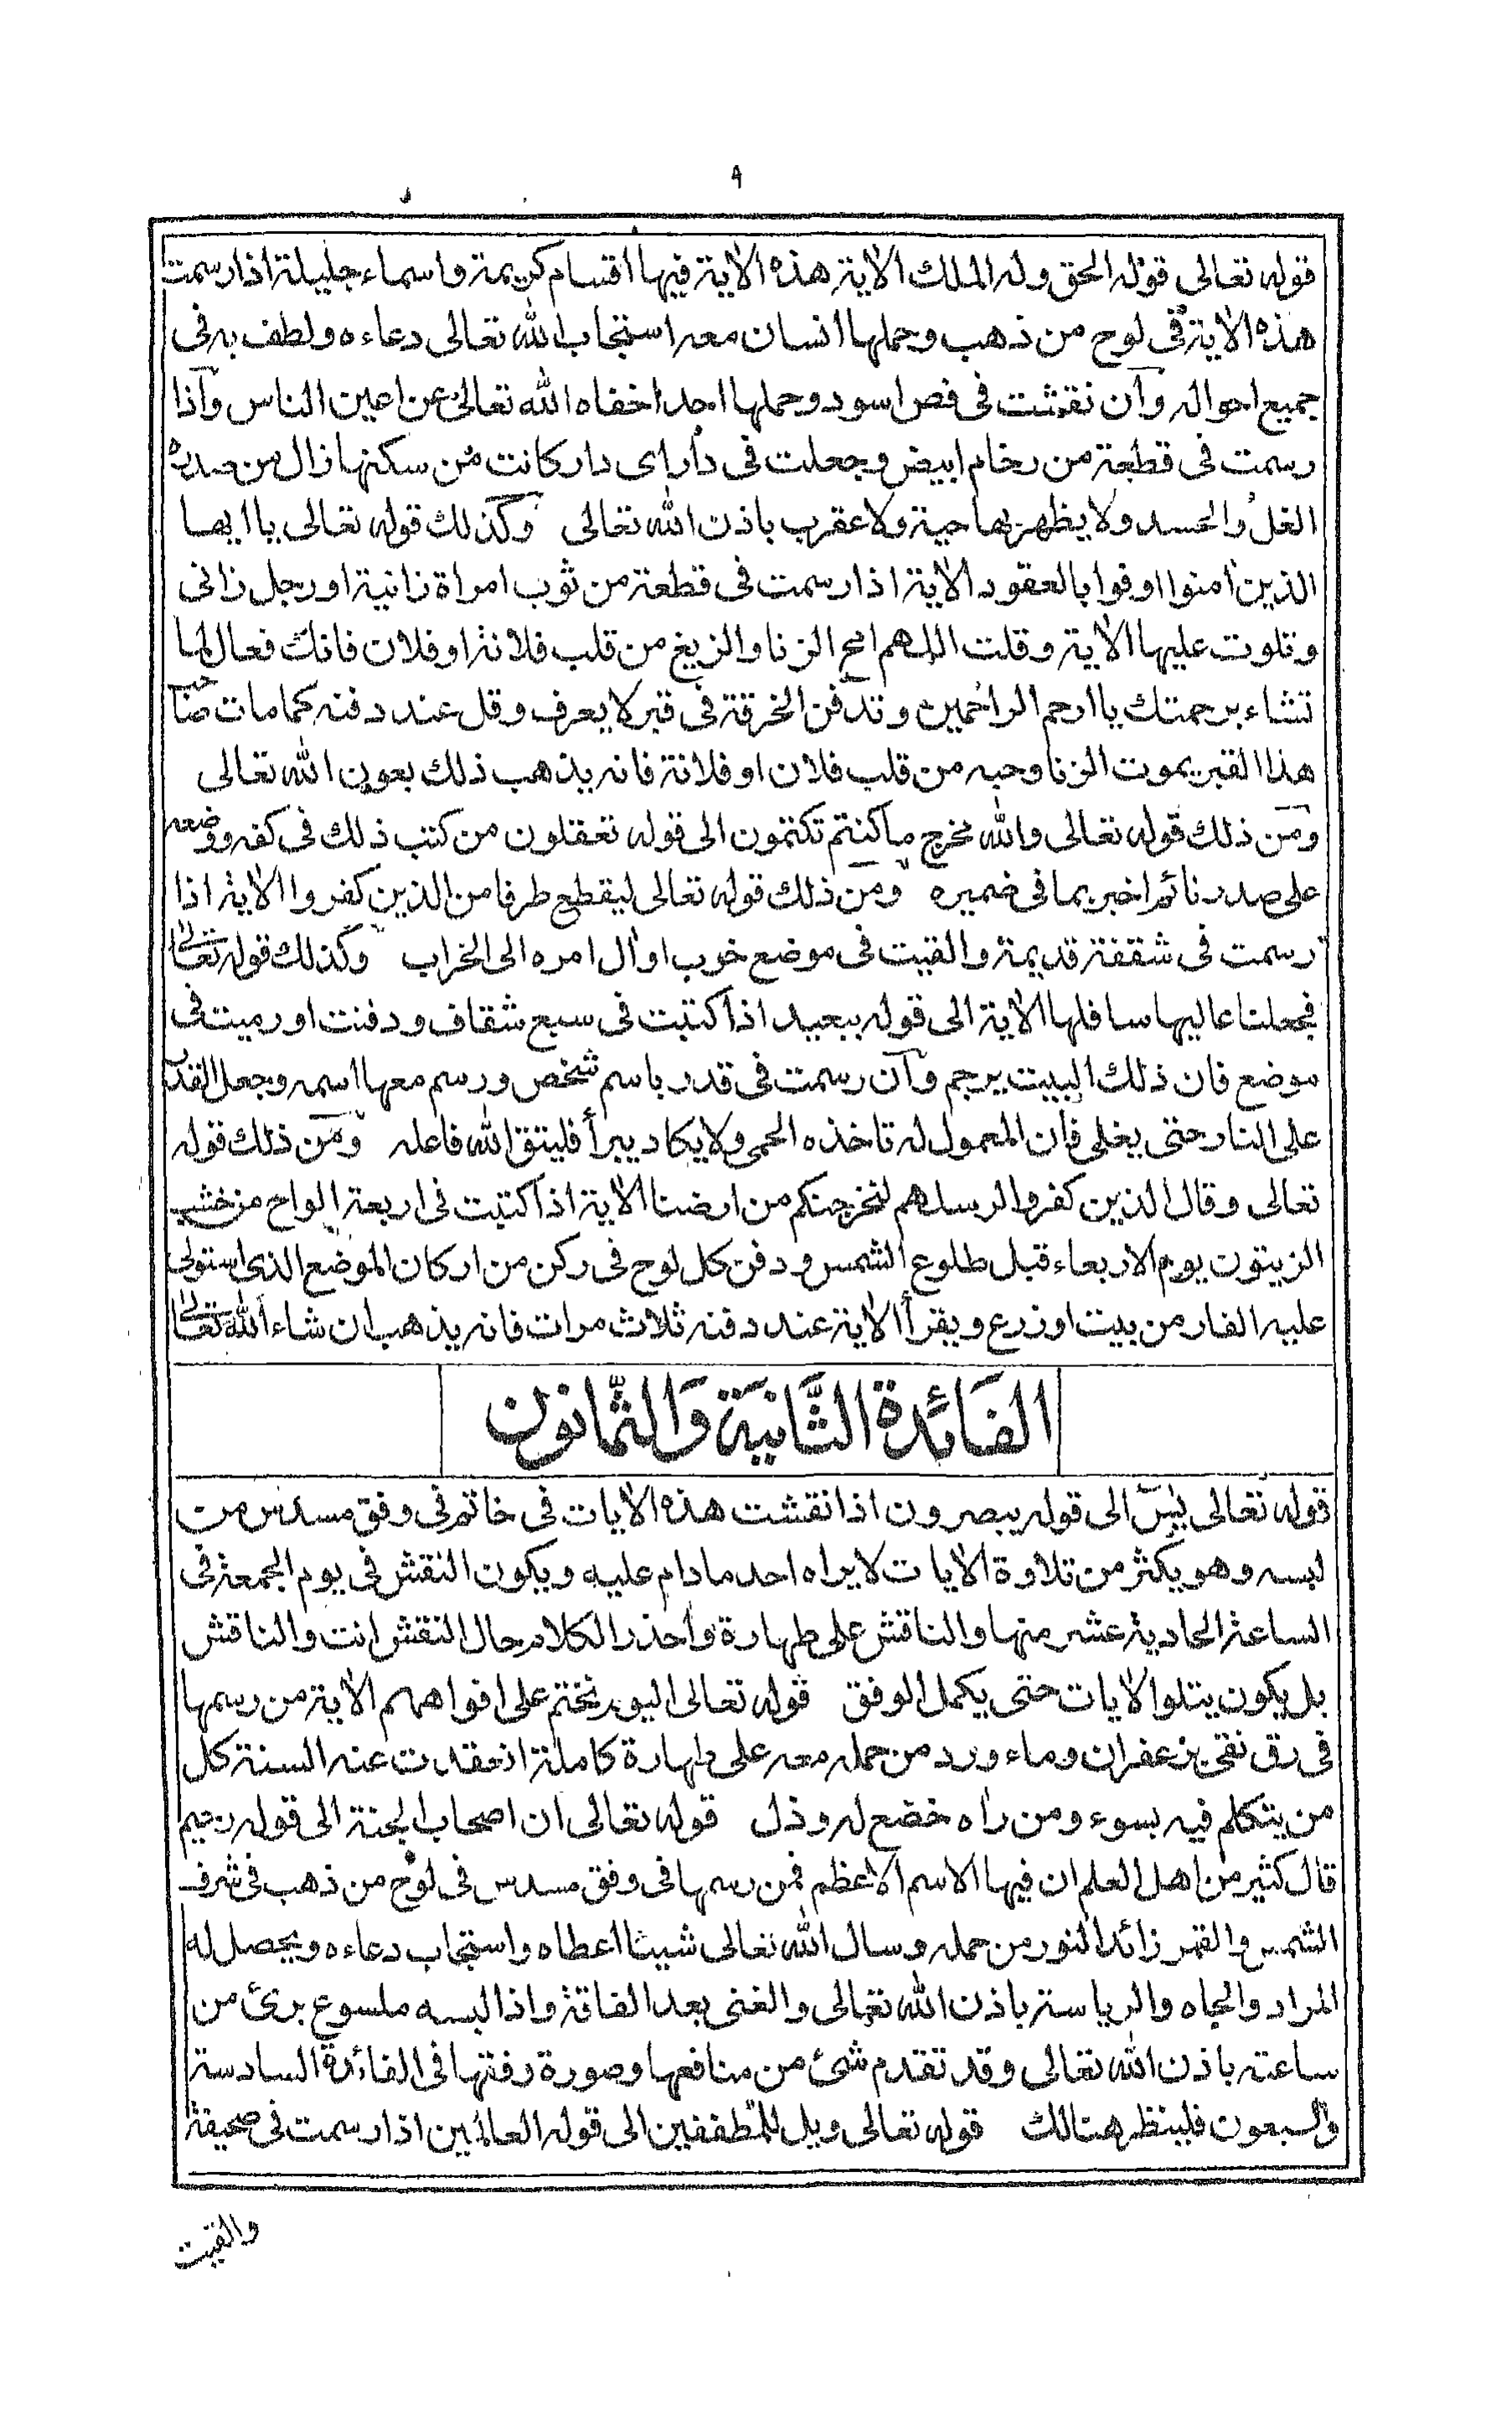 ٩
قوله تعالى قوله الحق وله الملك الاية هذه الاية فيها اقسام كريمة واسماء جليلة اذا رسمت
هذه الاية في لوح من ذهب وحملها انسان معه استجاب الله تعالى دعاءه ولطف به في
جميع احواله وان نقشت في فص اسود وحملها احد اخفاه الله تعالى عن اعين الناس واذا
رسمت في قطعة من رخام ابيض وجعلت في دار اى دار كانت من سكنها زال من صدره
الغل والحسد ولا يظهر بها حية ولا عقرب باذن الله تعالى وكذلك قوله تعالى يا ايها
الذين امنوا اوفوا بالعقود الاية اذا رسمت في قطعة من ثوب امراة زانية او رجل زاني
وتلوت عليها الاية وقلت اللهم امح الزنا والزيغ من قلب فلانة او فلان فانك فعال لما
تشاء برحمتك يا ارحم الراحمين وتدفن الخرقة في قبر لا يعرف وقل عند دفنه كما مات صاحب
هذا القبر يموت الزنا وحبه من قلب فلان او فلانة فانه يذهب ذلك بعون الله تعالى
ومن ذلك قوله تعالى والله مخرج ما كنتم تكتمون الى قوله تعقلون من كتب ذلك في كفه ووضعه
على صدر نائم اخبر بما في ضميره ومن ذلك قوله تعالى ليقطع طرفا من الذين كفروا الاية اذا
رسمت في شقفة قديمة والقيت في موضع خرب او ال امره الى الخراب وكذلك قوله تعالى
فجعلنا عاليها سافلها الاية الى قوله ببعيد اذا كتبت في سبع شقاف ودفنت او رميت في
موضع فان ذلك البيت يرجم وان رسمت في قدر باسم شخص ورسم معها اسمه وجعل القدر
على النار حتى يغلى فان المعمول له تاخذه الحمى ولا يكاد يبرأ فليتق الله فاعله ومن ذلك قوله
تعالى وقال الذين كفروا لرسلهم لنخرجنكم من ارضنا الاية اذا كتبت في اربعة الواح من خشب
الزيتون يوم الاربعاء قبل طلوع الشمس ودفن كل لوح في ركن من اركان الموضع الذى استولى
عليه الفار من بيت او زرع ويقرأ الاية عند دفنه ثلاث مرات فانه يذهب ان شاء الله تعالى
الفَائدة الثَّانيَة وَالثّمانون
قوله تعالى يٰسٓ الى قوله يبصرون اذا نقشت هذه الايات في خاتم في وفق مسدس من
لبسه وهو يكثر من تلاوة الايات لا يراه احد ما دام عليه ويكون النقش في يوم الجمعة في
الساعة الحادية عشر منها والناقش على طهارة واحذر الكلام حال النقش انت والناقش
بل يكون يتلوا الايات حتى يكمل الوفق قوله تعالى اليوم نختم على افواههم الاية من رسمها
في رق نقي بزعفران وماء ورد من حمله معه على طهارة كاملة انعقدت عنه السنة كل
من يتكلم فيه بسوء ومن راه خضع له وذل قوله تعالى ان اصحاب الجنة الى قوله رحيم
قال كثير من اهل العلم ان فيها الاسم الاعظم فمن رسمها في وفق مسدس في لوح من ذهب في شرف
الشمس والقمر زائد النور من حمله وسال الله تعالى شيئا اعطاه واستجاب دعاءه ويحصل له
المراد والجاه والرياسة باذن الله تعالى والغنى بعد الفاقة واذا لبسه ملسوع برئ من
ساعته باذن الله تعالى وقد تقدم شئ من منافعها وصورة رفتها في الفائدة السادسة
والسبعون فلينظر هنالك قوله تعالى ويل للمطففين الى قوله العالمين اذا رسمت في صحيفة
والقيت